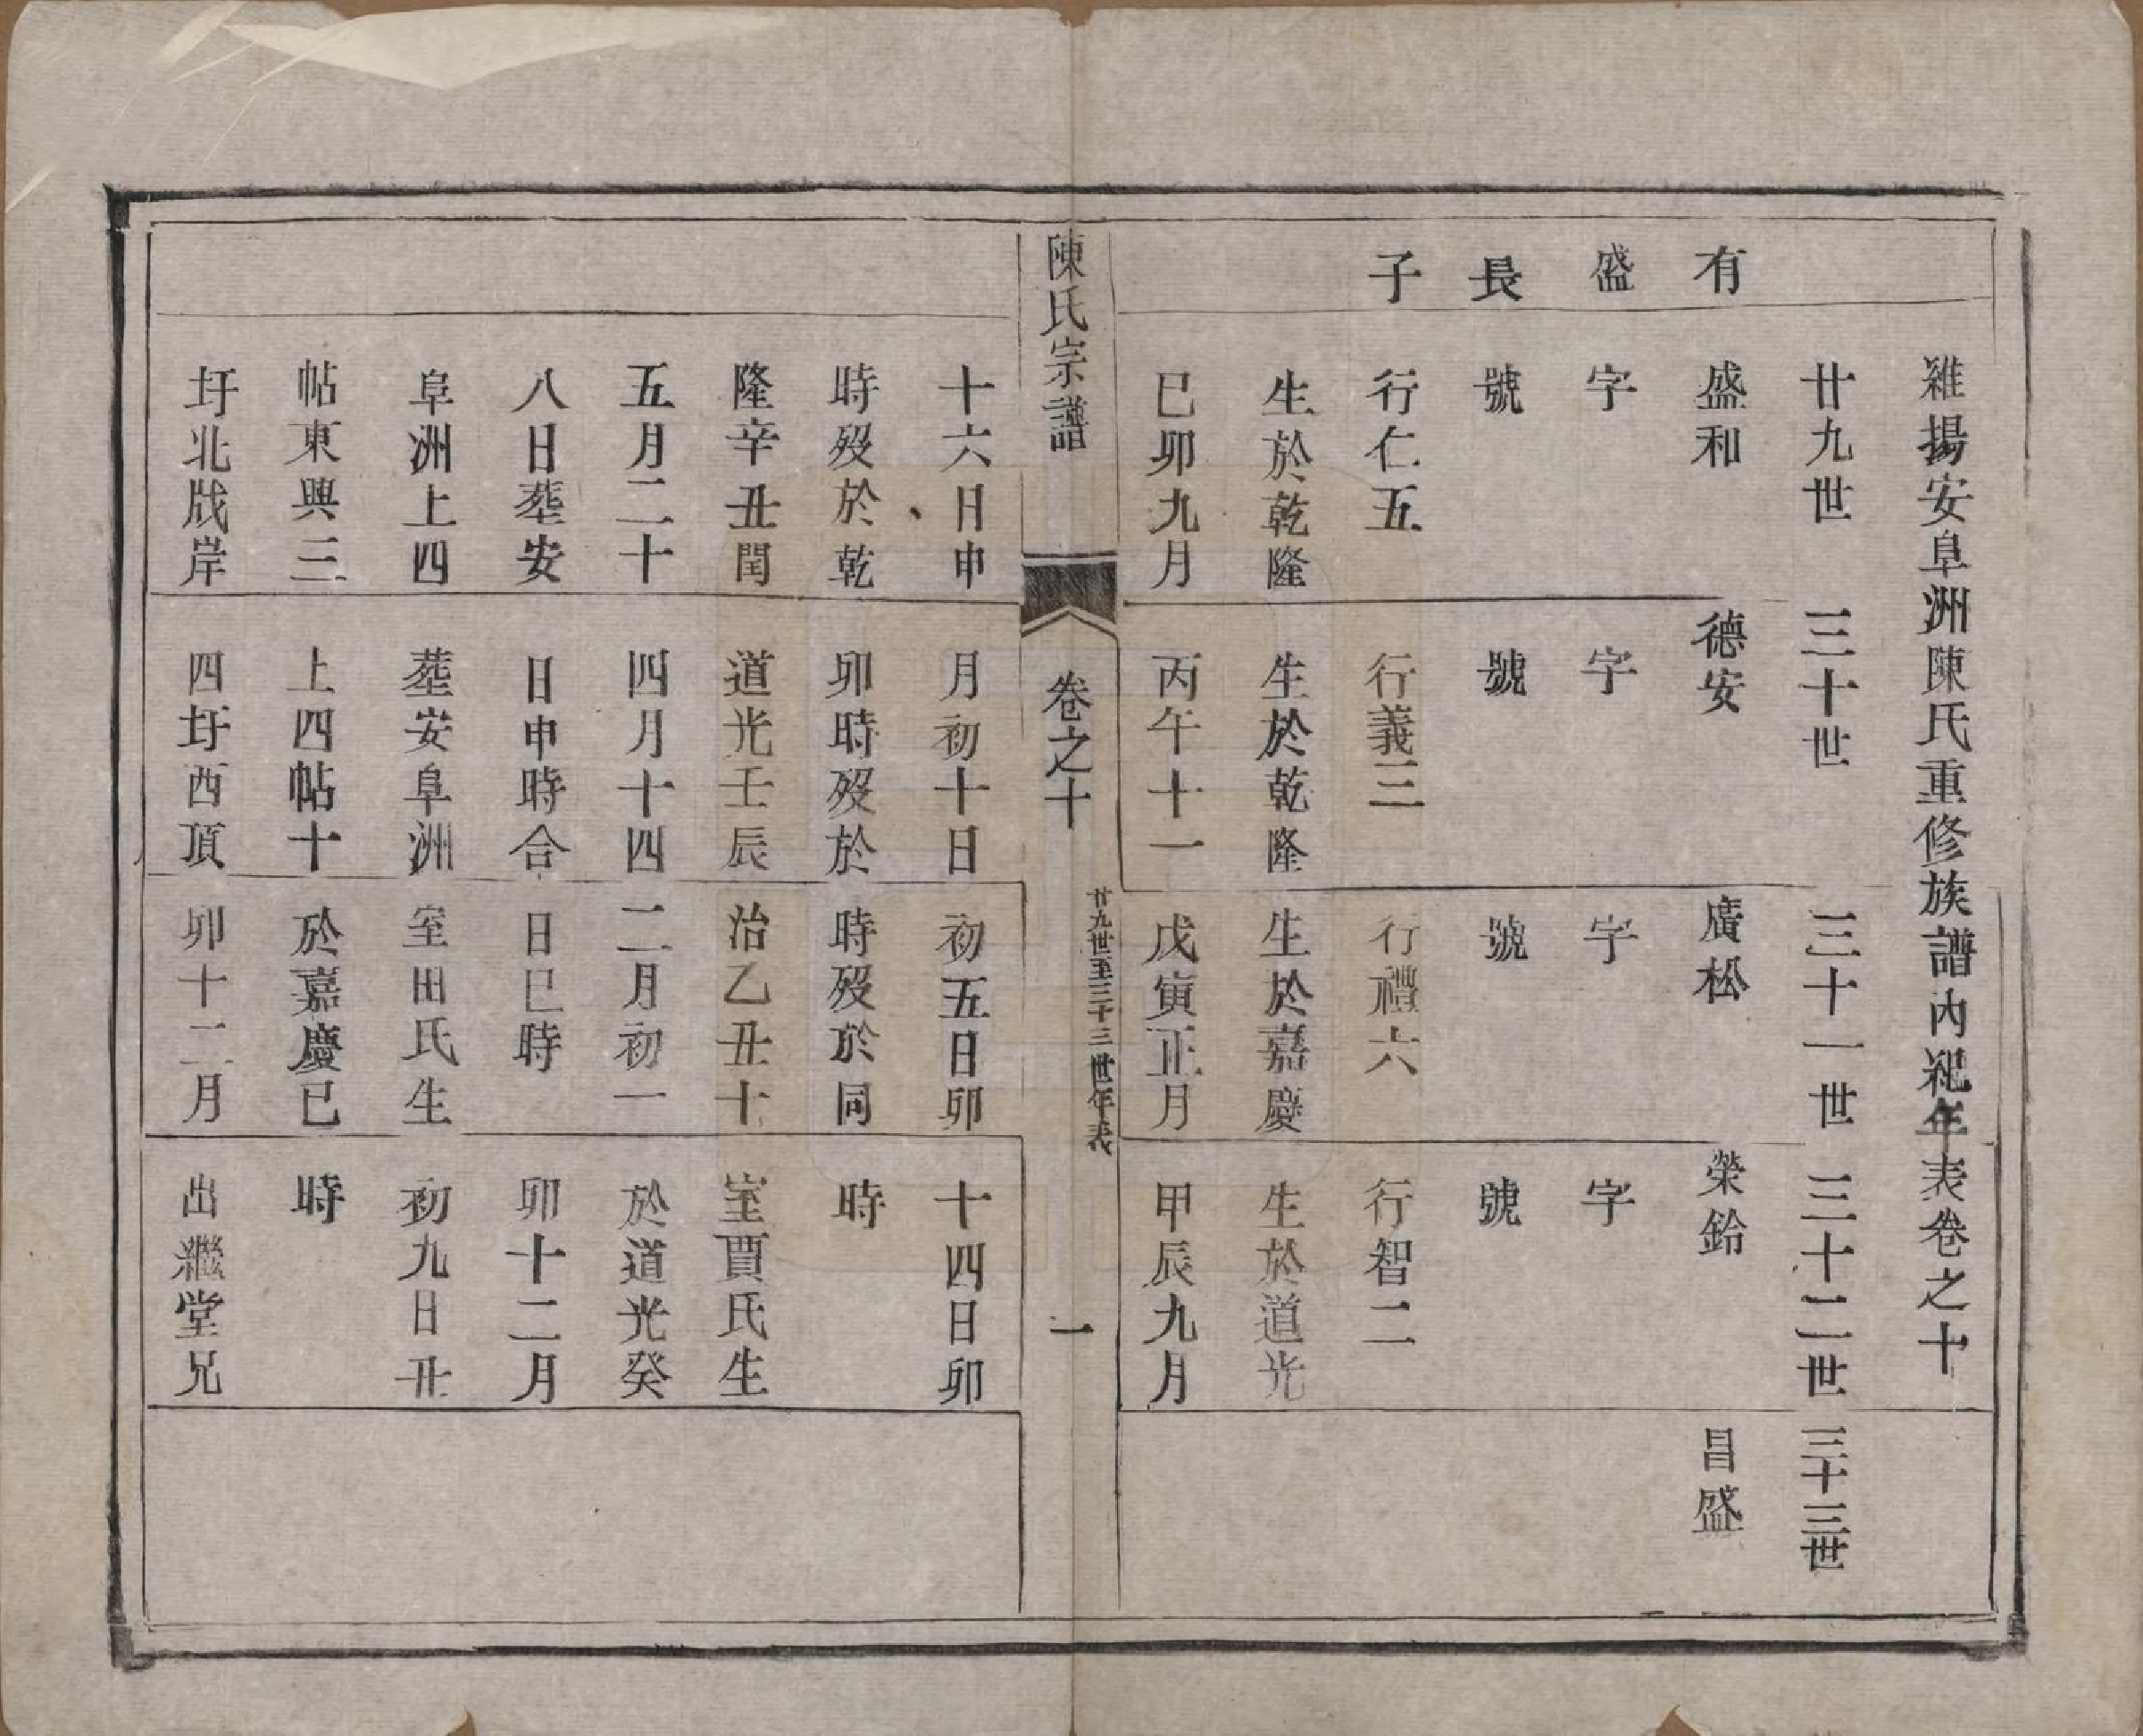 維揚安阜洲陳氏重修族譜內紀年表卷之十
有盛長子
廿九世
盛和
字
號
行仁五
生於乾隆
已卯九月
十六日申
時歿於乾
隆辛丑閏
五月二十
八日塟安
阜洲上四
帖東興三
圩北戗岸
三十世
德安
字
號
行義三
生於乾隆
丙午十一
月初十日
卯時歿於
道光壬辰
四月十四
日申時合
塟安阜洲
上四帖十
四圩西頂
三十一世
廣松
字
號
行禮六
生於嘉慶
戊寅正月
初五日卯
時歿於同
治乙丑十
二月初一
日巳時
室田氏生
於嘉慶已
卯十二月
三十二世
榮鈴
字
號
行智二
生於道光
甲辰九月
十四日卯
時
室賈氏生
於道光癸
卯十二月
初九日丑
時
出繼堂兄
三十三世
昌盛
陳氏宗譜
卷之十
廿九世至三十三世年表
一